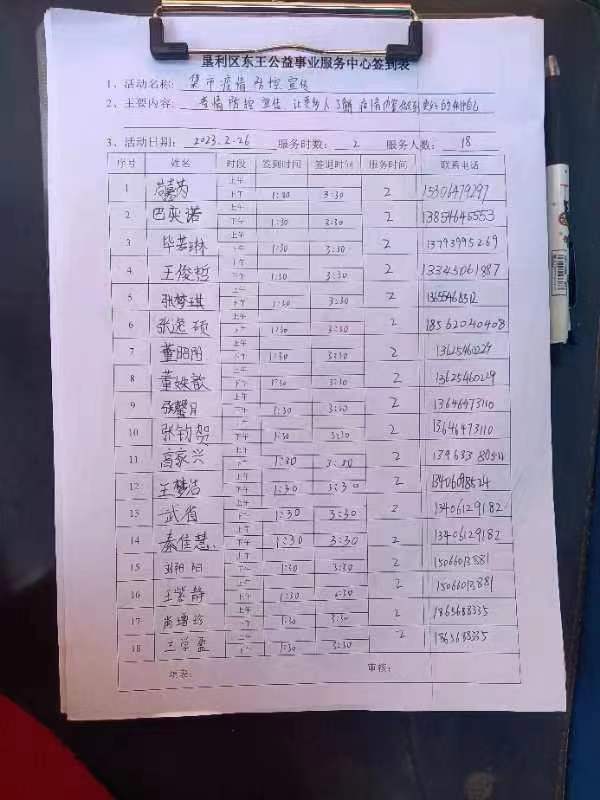 垦利区东王公益事业服务中心签到表
1、活动名称: 集市疫情防控宣传
2、主要内容: 疫情防控宣传, 让更多人了解
3、活动日期: 2023.2-26 服务时数: 2 服务人数: 18
序号 姓名 时段 签到时间 签退时间 服务时间 联系电话
1 上午 下午 1:30 3:30 2 15301479297
2 巴奕诺 上午 下午 1:30 3:30 2 13854645553
3 毕若琳 上午 下午 1:30 3:30 2 13793995269
4 王俊哲 上午 下午 1:30 3:30 2 13345061887
5 张梦琪 上午 下午 1:30 3:30 2
6 张逸硕 上午 下午 1:30 3:30 2 18562040408
7 董阳阳 上午 下午 1:30 3:30 2 13625460229
8 董姝歆 上午 下午 1:30 3:30 2 13625460229
9 张馨月 上午 下午 1:30 3:30 2 13646473110
10 张钧贺 上午 下午 1:30 3:30 2 13646473110
11 高家兴 上午 下午 1:30 3:30 2
12 王梦洁 上午 下午 1:30 3:30 2
13 武省 上午 下午 1:30 3:30 2 13406129182
14 秦佳慧 上午 下午 1:30 3:30 2 13406129182
15 刘阳阳 上午 下午 1:30 3:30 2 15066013881
16 王紫静 上午 下午 1:30 3:30 2 15066013881
17 上午 下午 1:30 3:30 2
18 上午 下午 1:30 3:30 2
填表: 审核: